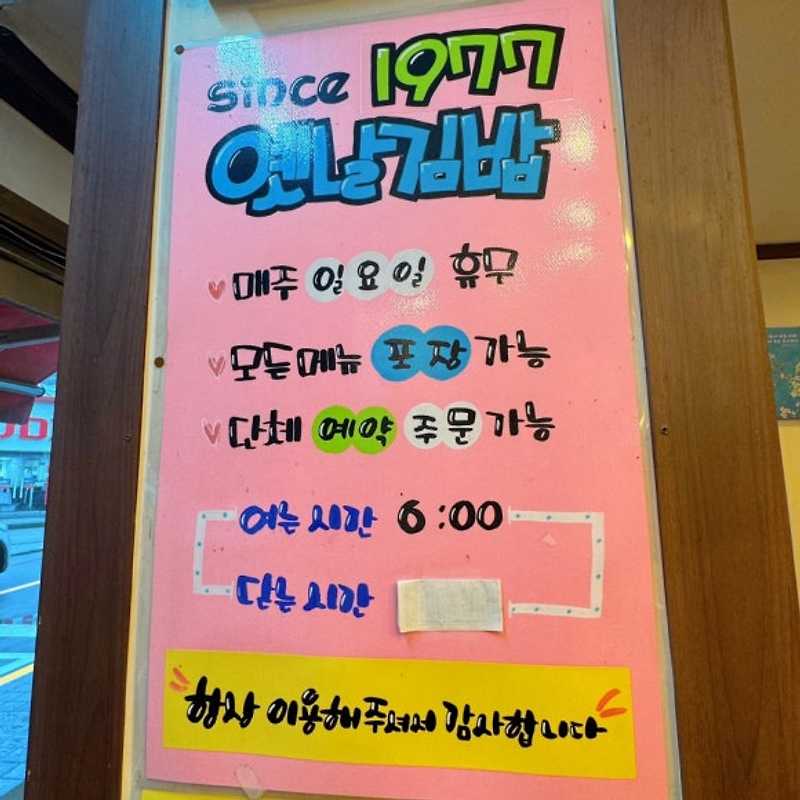 since 1977
옛날김밥
매주 일요일 휴무
모든메뉴 포장 가능
단체 예약 주문 가능
여는 시간 6:00
닫는 시간
항상 이용해주셔서 감사합니다